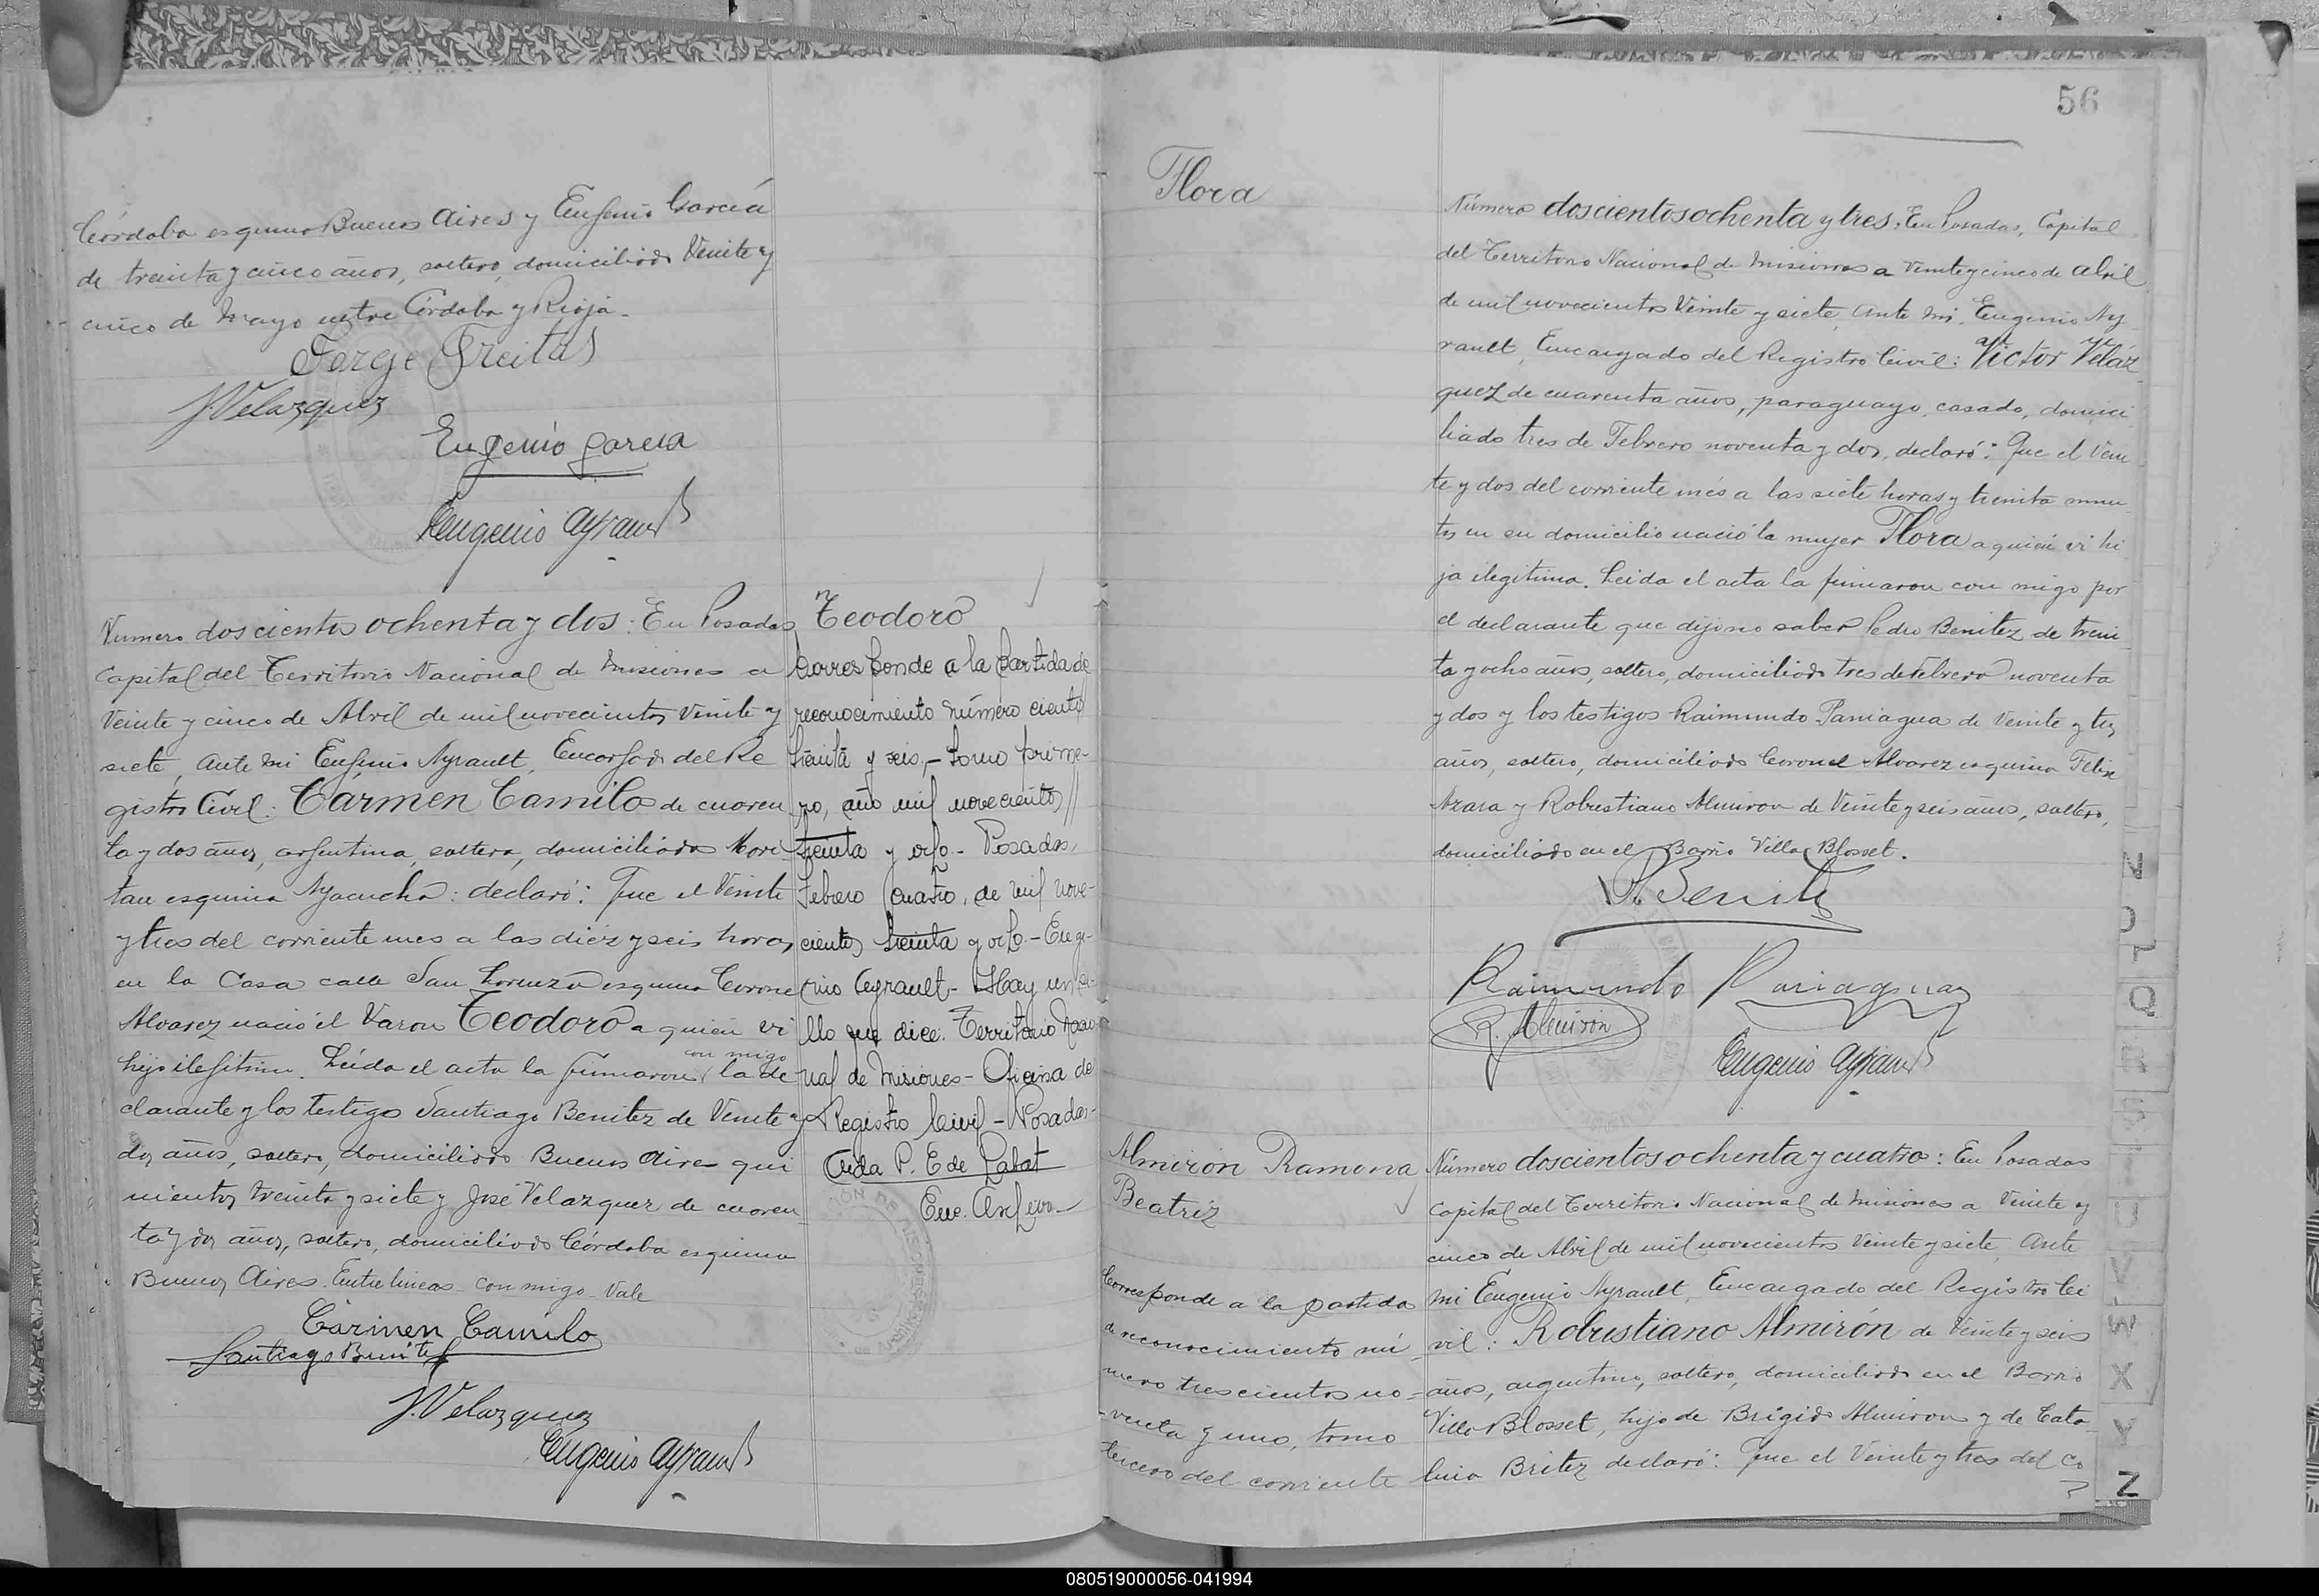 Córdoba esquina Buenos Aires y Eugenio García
de treinta y cinco años, soltero, domiciliado Veinte y
cinco de Mayo entre Córdoba y Rioja.
Jorge Freitas
J. Velazquez
Eugenio Garcia
Eugenio Ayrault
Numero doscientos ochenta y dos: En Posadas
Capital del Territorio Nacional de Misiones a
Veinte y cinco de Abril de mil novecientos Veinte y
siete, Ante mi Eugenio Ayrault, Encargado del Re
gistro Civil: Carmen Camilo de cuaren
ta y dos años, argentina, soltera, domiciliada
esquina Ayacucho: declaró: Que el Veinte
y tres del corriente mes a las diéz y seis horas
en la Casa calle San Lorenzo esquina Coronel
Alvarez nació el Varon Teodoro a quien vi
hijo ilegítimo. Leída el acta la firmaron con migo la de
clarante y los testigos Santiago Benitez de Veinte y
dos años, soltero, domiciliado Buenos Aires qui
nientos treinta y siete y José Velazquez de cuaren
ta y dos años, soltero, domiciliado Córdoba esquina
Buenos Aires. Entre lineas - con migo - Vale
Carmen Camilo
Santiago Benitez
J. Velazquez
Eugenio Ayrault
Teodoro
Corresponde a la partida de
reconocimiento número ciento
treinta y seis, - tomo prime-
ro, año mil novecientos //
treinta y ocho - Posadas,
Febrero cuatro, de mil nove-
cientos treinta y ocho. - Euge-
nio Ayrault - Hay un se-
llo que dice: Territorio Nacio-
nal de Misiones - Oficina de
Registro Civil - Posadas -
Aida P. E de
Enc. Archivo
56
Flora
Número doscientos ochenta y tres: En Posadas, Capital
del Territorio Nacional de Misiones a Veinte y cinco de Abril
de mil novecientos Veinte y siete, Ante mi Eugenio Ay
rault, Encargado del Registro Civil: Victor Veláz
quez de cuarenta años, paraguayo, casado, domici
liado tres de Febrero noventa y dos, declaró: Que el Vein
te y dos del corriente més a las siete horas y treinta minu
tos en su domicilio nació la mujer Flora a quien vi hi
ja ilegitima. Leida el acta la firmaron con migo por
el declarante que dijo no saber Pedro Benitez de trein
ta y ocho años, soltero, domiciliado tres de Febrero noventa
y dos y los testigos Raimundo Paniagua de Veinte y tres
años, soltero, domiciliado Coronel Alvarez esquina Felix
Azara y Robustiano Almiron de Veinte y seis años, soltero,
domiciliado en el Barrio Villa Blosset.
P. Benitez
Raimundo Paniagua
R. Almirón
Eugenio Ayrault
Almirón Ramona
Beatriz
Corresponde a la partida
de reconocimiento nú-
mero trescientos no-
venta y uno, tomo
tercero del corriente
Número doscientos ochenta y cuatro: En Posadas
Capital del Territorio Nacional de Misiones a Veinte y
cinco de Abril de mil novecientos Veinte y siete, Ante
mi Eugenio Ayrault, Encargado del Registro Ci
vil: Robustiano Almirón de Veinte y seis
años, argentino, soltero, domiciliado en el Barrio
Villa Blosset, hijo de Brigido Almiron y de Cata
lina Britez declaró: Que el Veinte y tres del co
N
Q
R
U
V
W
X
Y
Z
080519000056-041994